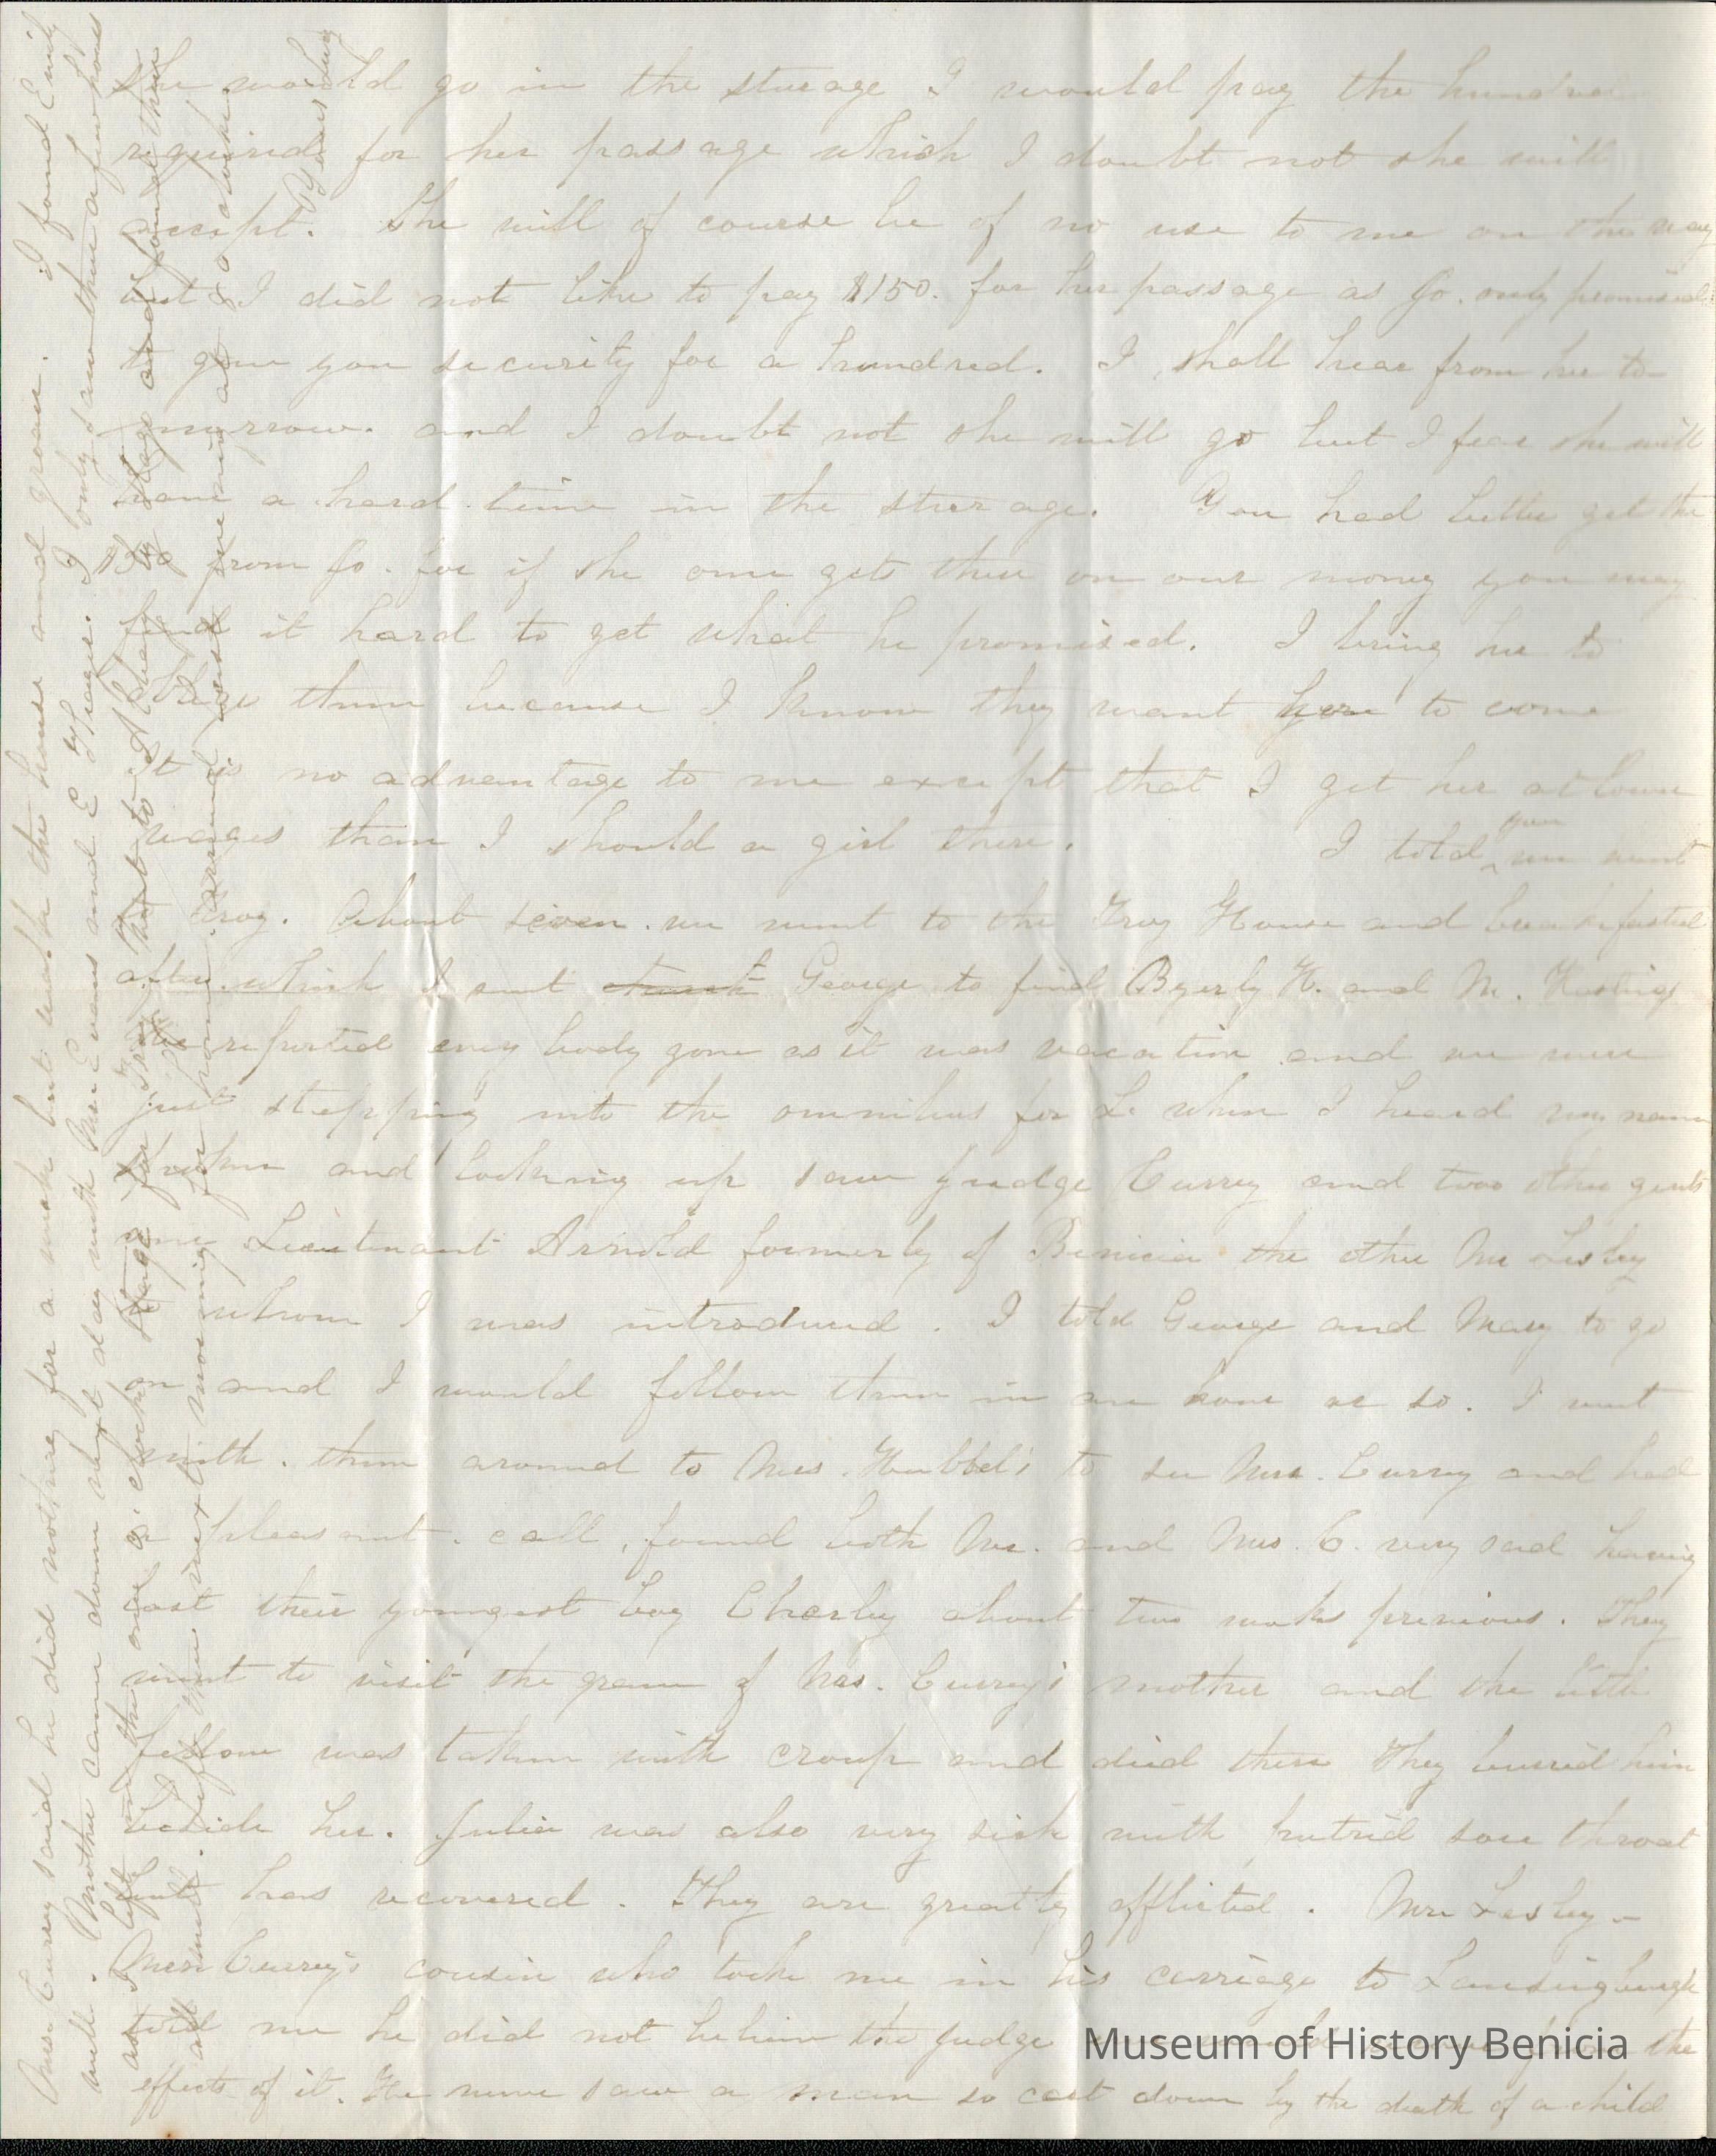 she would go in the sterage I would pay the hundred
required for her passage which I doubt not she will
accept. She will of course be of no use to me on the way
but I did not like to pay $150. for her passage as Jo. only promised
to give you security for a hundred. I shall hear from her to-
morrow. and I doubt not she will go but I fear she will
have a hard time in the sterage. You had better get the
from Jo. for if she once gets there on our money you may
find it hard to get what he promised. I bring her to
oblige them because I know they want her to come
It is no advantage to me except that I get her at lower
wages than I should a girl there. I told you we went
to Troy. About seven we went to the Troy House and breakfasted
after which I sent George to find Byerly H. and M. Hastings
He reported every body gone as it was vacation and we were
just stepping into the omnibus for L. when I heard my name
spoken and looking up saw Judge Currey and two other gents
one Lieutenant Arnold formerly of Benicia the other Mr Lesley
to whom I was introduced. I told George and Mary to go
on and I would follow them in an hour or so. I went
with them around to Mrs. Hubbel's to see Mrs. Currey and had
a pleasant call, found both Mr. and Mrs. C. very sad having
lost their youngest boy Charley about two weeks previous. They
went to visit the grave of Mrs. Currey's mother and the little
fellow was taken with croup and died there They buried him
beside her. Julia was also very sick with putrid sore throat
but has recovered. They are greatly afflicted. Mr Lesley -
Mrs Currey's cousin who took me in his carriage to Lansingburgh
told me he did not believe the Judge the
effects of it. He never saw a man so cast down by the death of a child
Mrs. Currey said he did nothing for a week but walk the house and groan. I found Emily
well. Mother came down next day with Mr. Evans and E Frazer. I only saw them a few hours
as I left in the one o'clock stage for Troy then to Albany by stage and found them
all well. Left them next morning for home. arrived just five min after 8 o'clock
Yours Lucy
Museum of History Benicia